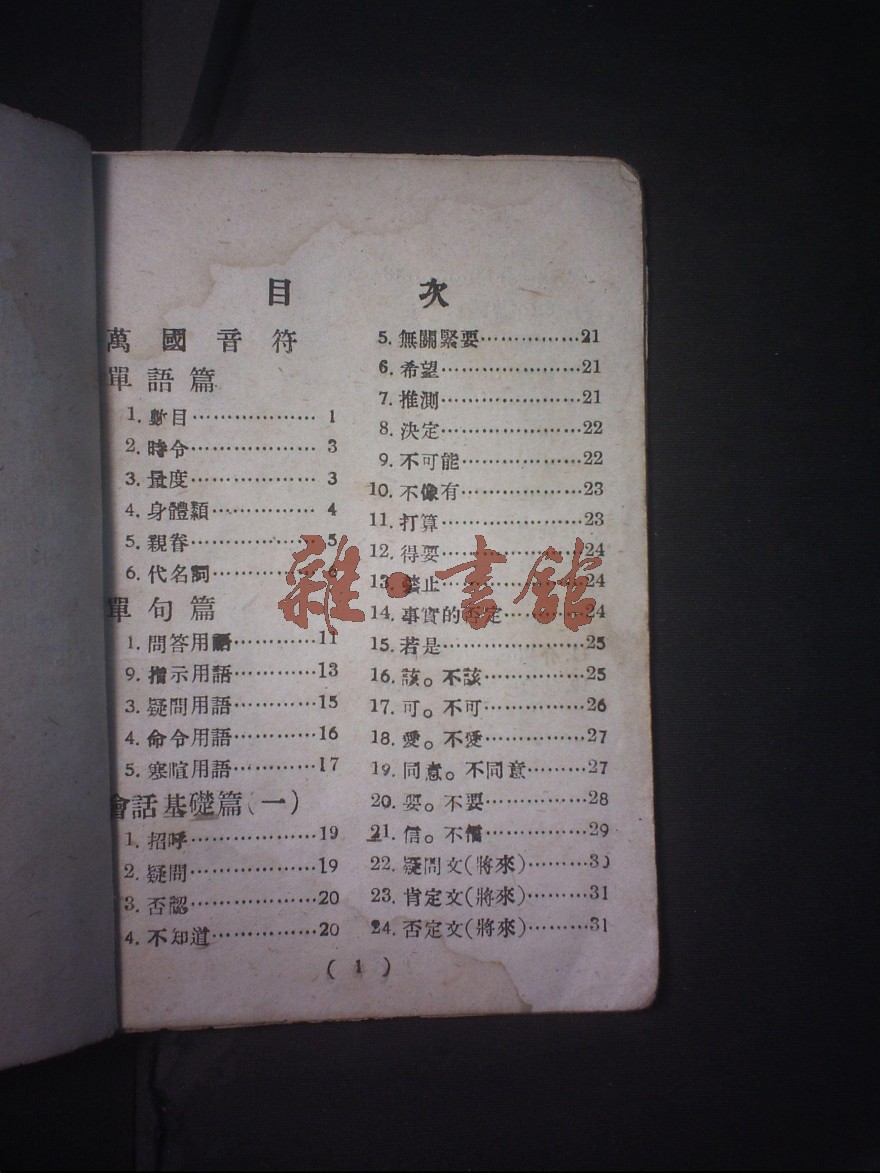 目 次
萬國音符
單語篇
1. 數目……………… 1
2. 時令……………… 3
3. 量度……………… 3
4. 身體類…………… 4
5. 親眷……………… 5
6. 代名詞…………… 6
單句篇
1. 問答用語…………11
9. 指示用語…………13
3. 疑問用語…………15
4. 命令用語…………16
5. 寒暄用語…………17
會話基礎篇(一)
1. 招呼………………19
2. 疑問………………19
3. 否認………………20
4. 不知道……………20
5. 無關緊要……………21
6. 希望…………………21
7. 推測…………………21
8. 決定…………………22
9. 不可能………………22
10. 不像有………………23
11. 打算…………………23
12. 得要…………………24
13. 禁止…………………24
14. 事實的否定…………24
15. 若是…………………25
16. 該。不該……………25
17. 可。不可……………26
18. 愛。不愛……………27
19. 同意。不同意………27
20. 要。不要……………28
21. 信。不信……………29
22. 疑問文(將來)………30
23. 肯定文(將來)………31
24. 否定文(將來)………31
( 1 )
雜·書館